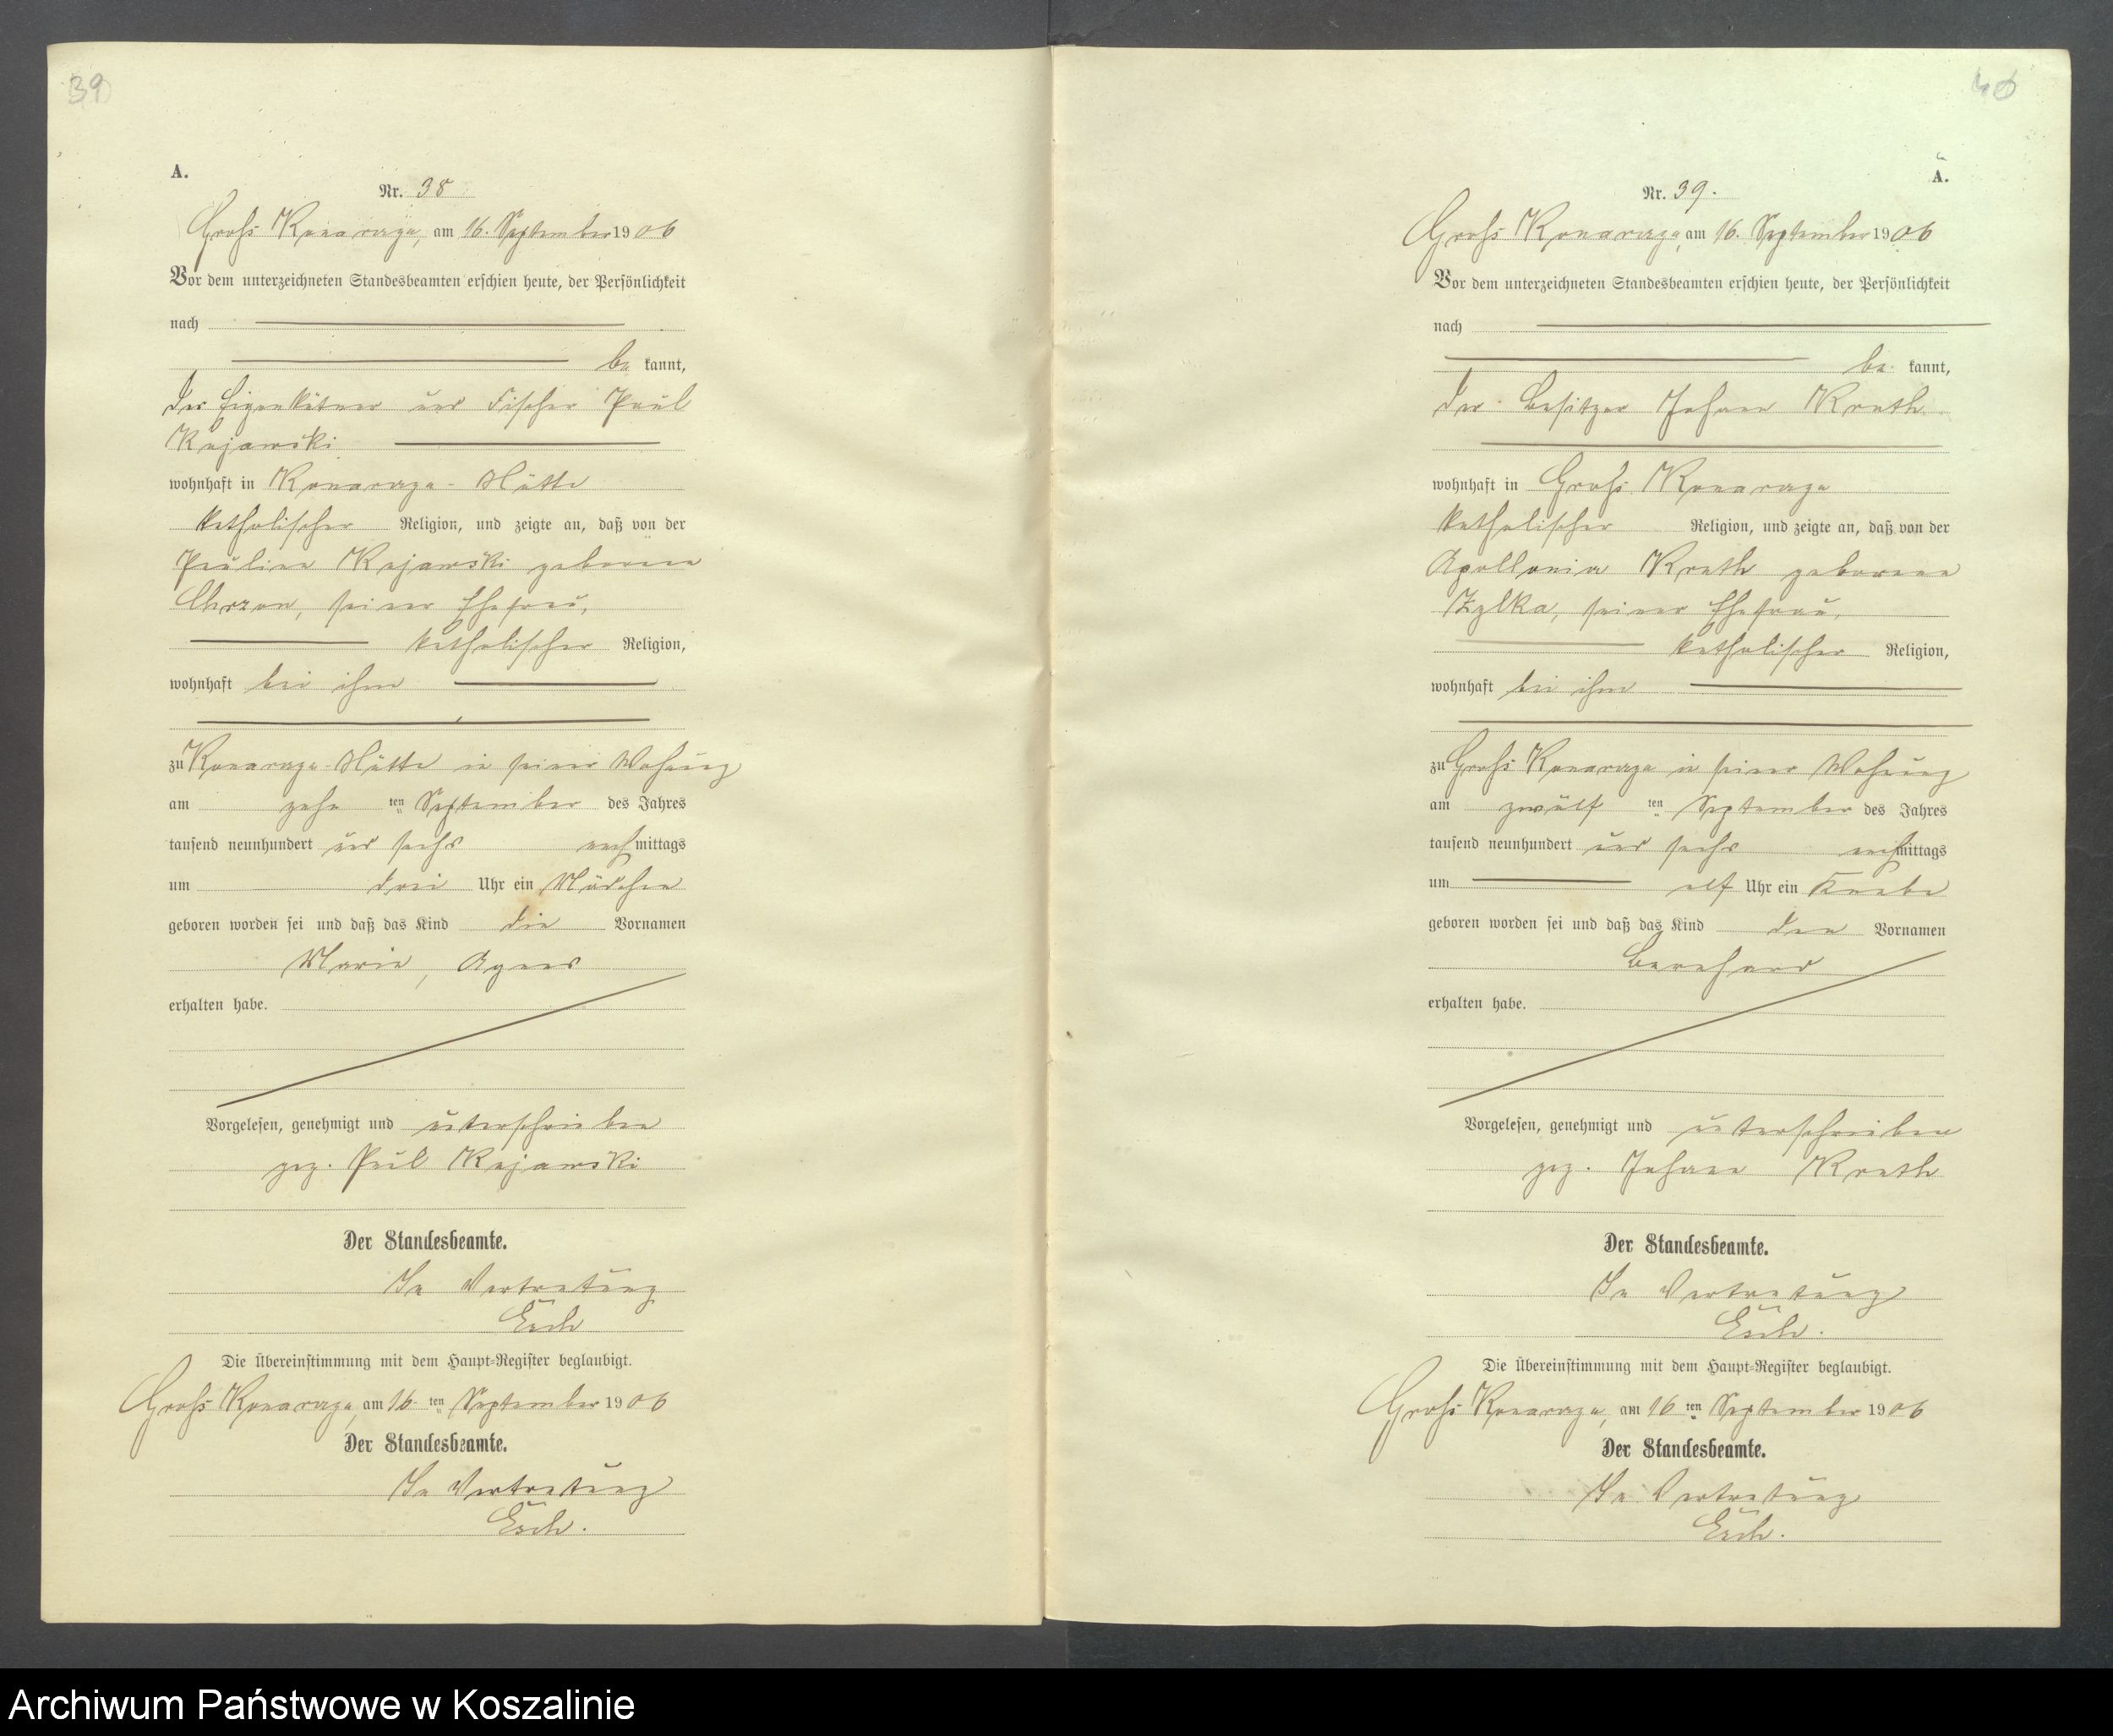 39
A.
Nr. 38
Groß Konarzyn, am 16. September 1906
Vor dem unterzeichneten Standesbeamten erschien heute, der Persönlichkeit
nach
be kannt,
der Eigenkätner und Fischer Paul
Kujawski
wohnhaft in Konarzyn-Hütte
katholischer Religion, und zeigte an, daß von der
Pauline Kujawski geborene
Chrzan, seiner Ehefrau,
katholischer Religion,
wohnhaft bei ihm
zu Konarzyn-Hütte in seiner Wohnung
am zehn ten September des Jahres
tausend neunhundert und sechs nachmittags
um drei Uhr ein Mädchen
geboren worden sei und daß das Kind die Vornamen
Marie, Agnes
erhalten habe.
Vorgelesen, genehmigt und unterschrieben
gez. Paul Kujawski
Der Standesbeamte.
In Vertretung
Die Übereinstimmung mit dem Haupt-Register beglaubigt.
Groß Konarzyn, am 16. ten September 1906
Der Standesbeamte.
In Vertretung
40
A.
Nr. 39.
Groß Konarzyn, am 16. September 1906
Vor dem unterzeichneten Standesbeamten erschien heute, der Persönlichkeit
nach
be kannt,
der Besitzer Johann
wohnhaft in Groß Konarzyn
katholischer Religion, und zeigte an, daß von der
Apollonia geborene
Zylka, seiner Ehefrau,
katholischer Religion,
wohnhaft bei ihm
zu Groß Konarzyn in seiner Wohnung
am zwölf ten September des Jahres
tausend neunhundert und sechs nachmittags
um elf Uhr ein Knabe
geboren worden sei und daß das Kind den Vornamen
Bernhard
erhalten habe.
Vorgelesen, genehmigt und unterschrieben
gez. Johann
Der Standesbeamte.
In Vertretung
Die Übereinstimmung mit dem Haupt-Register beglaubigt.
Groß Konarzyn, am 16 ten September 1906
Der Standesbeamte.
In Vertretung
Archiwum Państwowe w Koszalinie